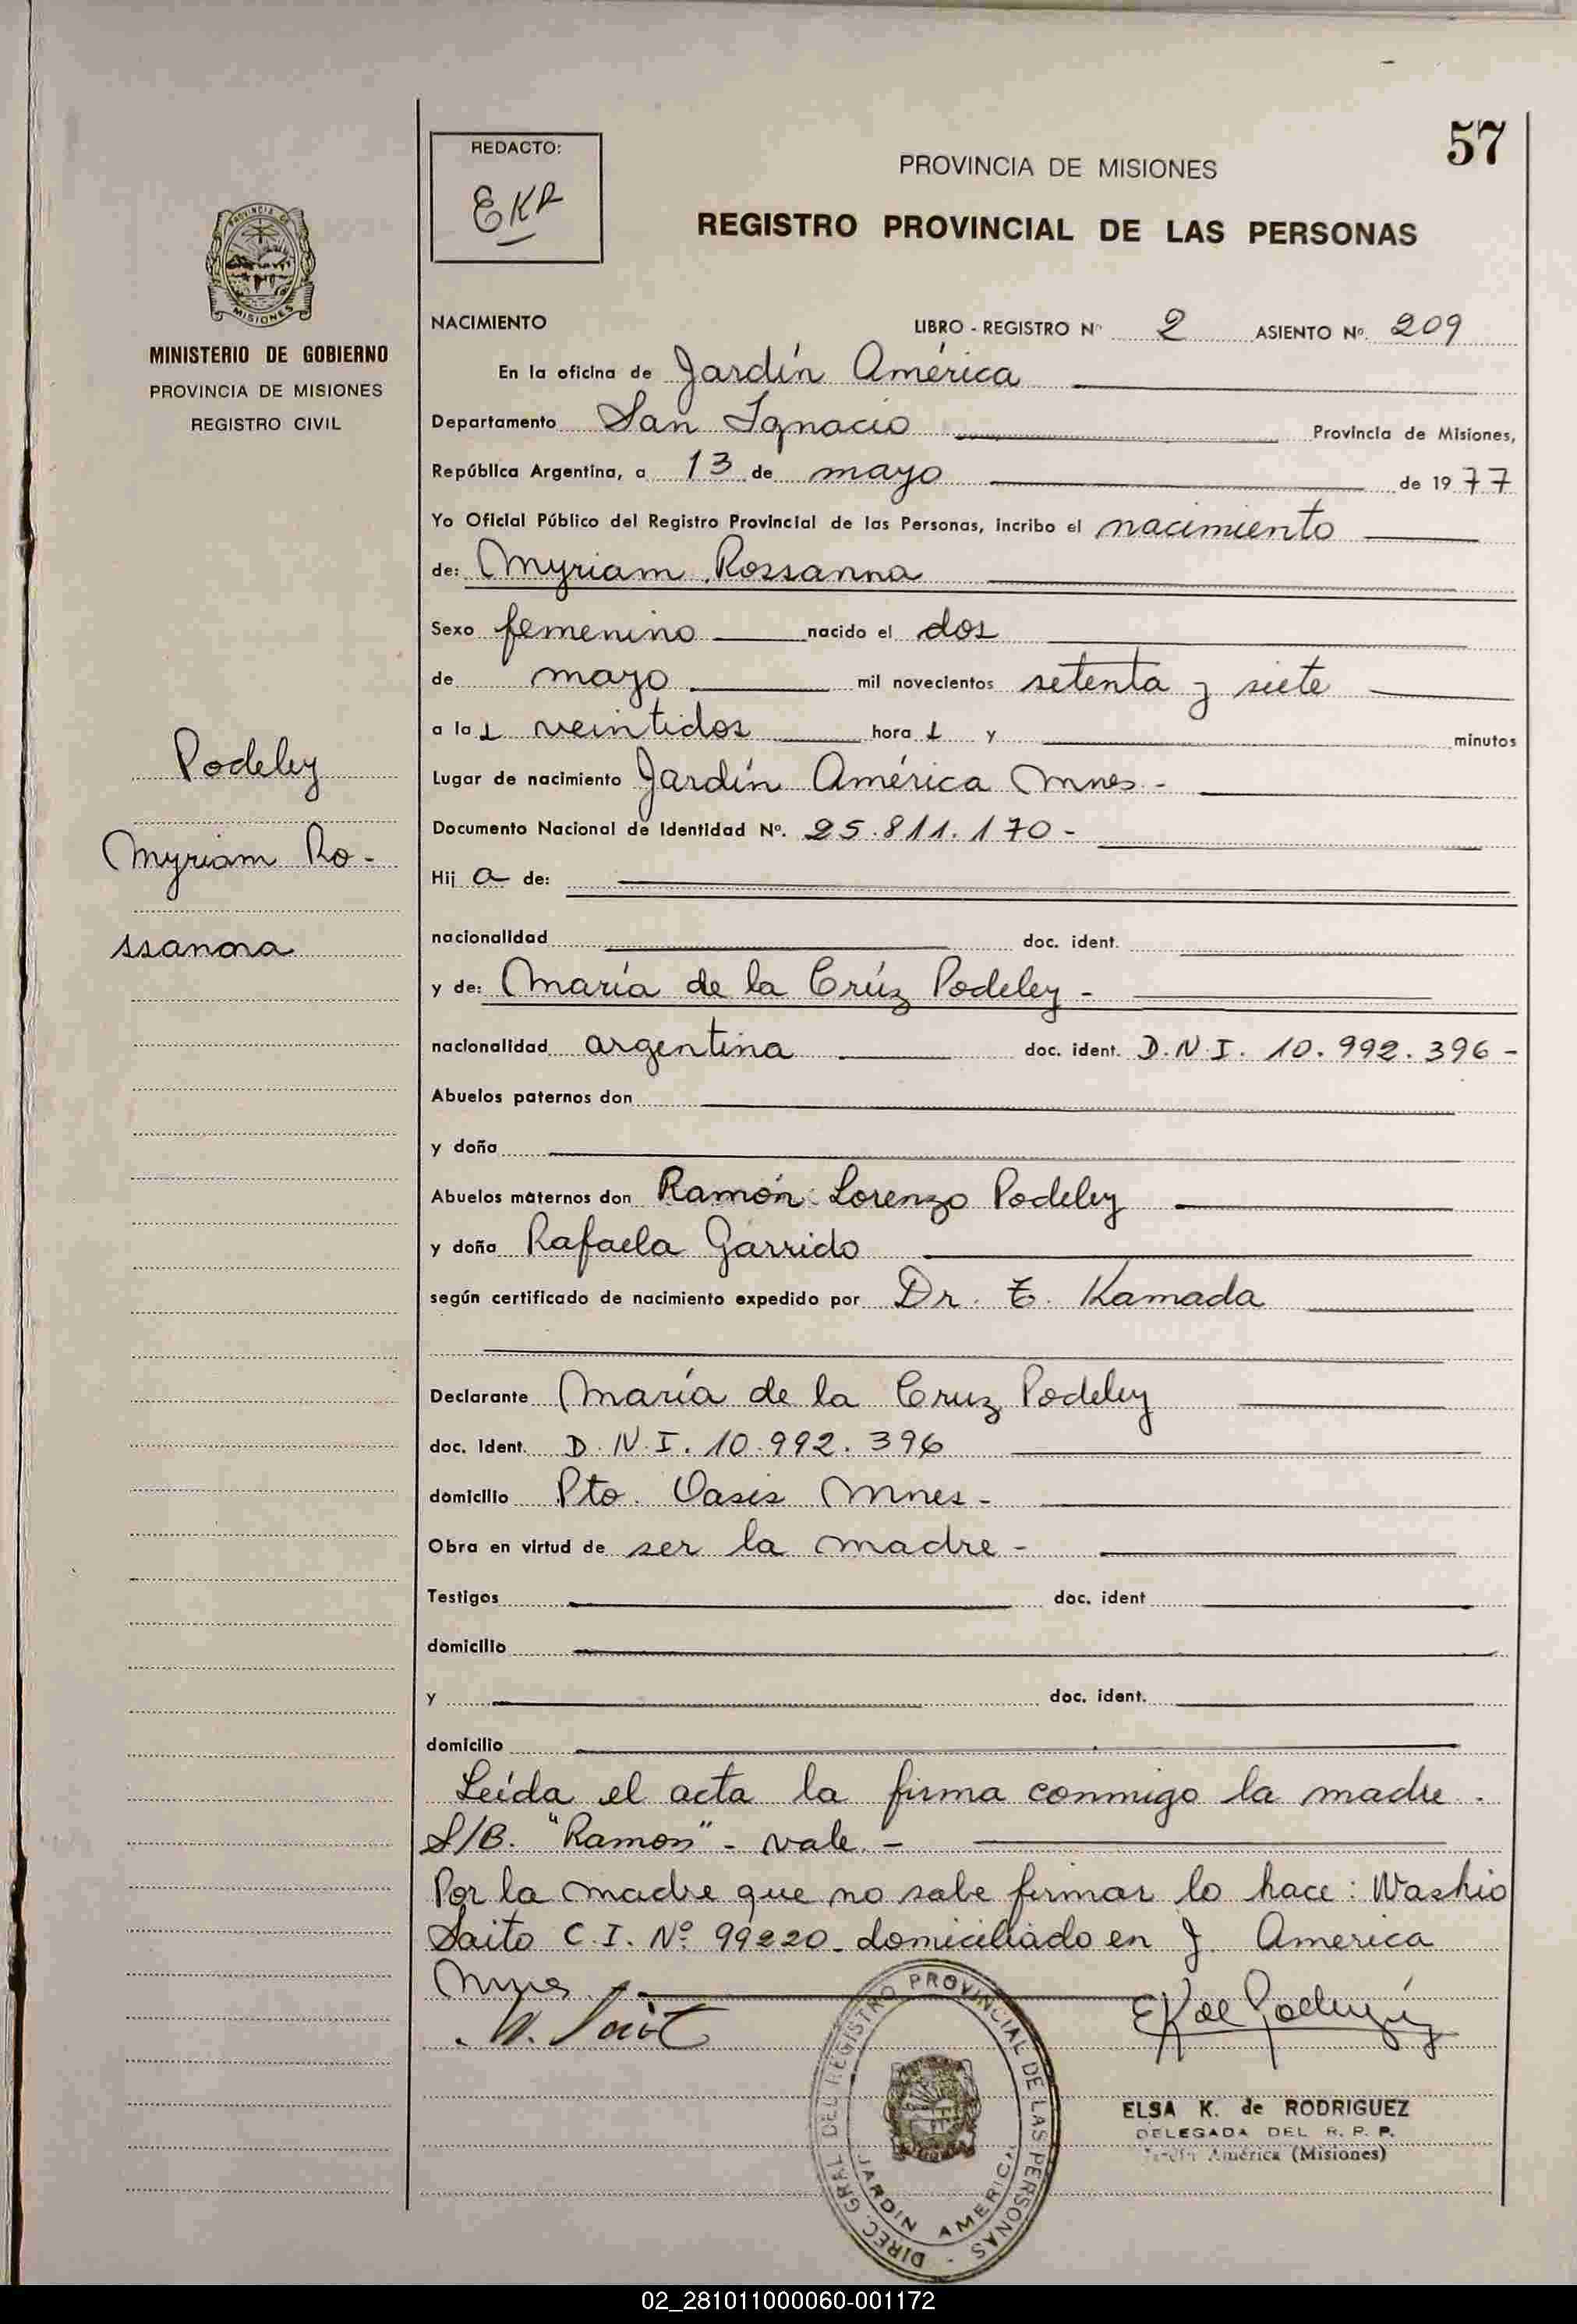 57
REDACTO:
EKR
PROVINCIA DE MISIONES
REGISTRO PROVINCIAL DE LAS PERSONAS
PROVINCIA DE
MISIONES
MINISTERIO DE GOBIERNO
PROVINCIA DE MISIONES
REGISTRO CIVIL
Podeley
Myriam Ro-
ssanna
NACIMIENTO LIBRO - REGISTRO Nº 2 ASIENTO Nº. 209
En la oficina de Jardín América
Departamento San Ignacio Provincia de Misiones,
República Argentina, a 13 de mayo de 1977
Yo Oficial Público del Registro Provincial de las Personas, incribo el nacimiento
de: Myriam Rossanna
Sexo femenino nacido el dos
de mayo mil novecientos setenta y siete
a la s veintidos hora s y minutos
Lugar de nacimiento Jardín América Mnes -
Documento Nacional de Identidad Nº. 25.811.170 -
Hij a de:
nacionalidad doc. ident.
y de: María de la Crúz Podeley -
nacionalidad argentina doc. ident. D.N.I. 10.992.396 -
Abuelos paternos don
y doña
Abuelos maternos don Ramón Lorenzo Podeley
y doña Rafaela Garrido
según certificado de nacimiento expedido por Dr. T. Kamada
Declarante María de la Cruz Podeley
doc. Ident. D.N.I. 10.992.396
domicilio Pto. Oasis Mnes -
Obra en virtud de ser la madre -
Testigos doc. ident
domicilio
y doc. ident.
domicilio
Leída el acta la firma conmigo la madre.
S/B. "Ramon" - vale -
Por la madre que no sabe firmar lo hace: Washio
Saito C.I. Nº 99220 - domiciliado en J. America
Mnes
DIREC. GRAL. DEL REGISTRO PROVINCIAL DE LAS PERSONAS
JARDIN AMERICA
ELSA K. de RODRIGUEZ
DELEGADA DEL R. P. P.
Jardín América (Misiones)
02_281011000060-001172